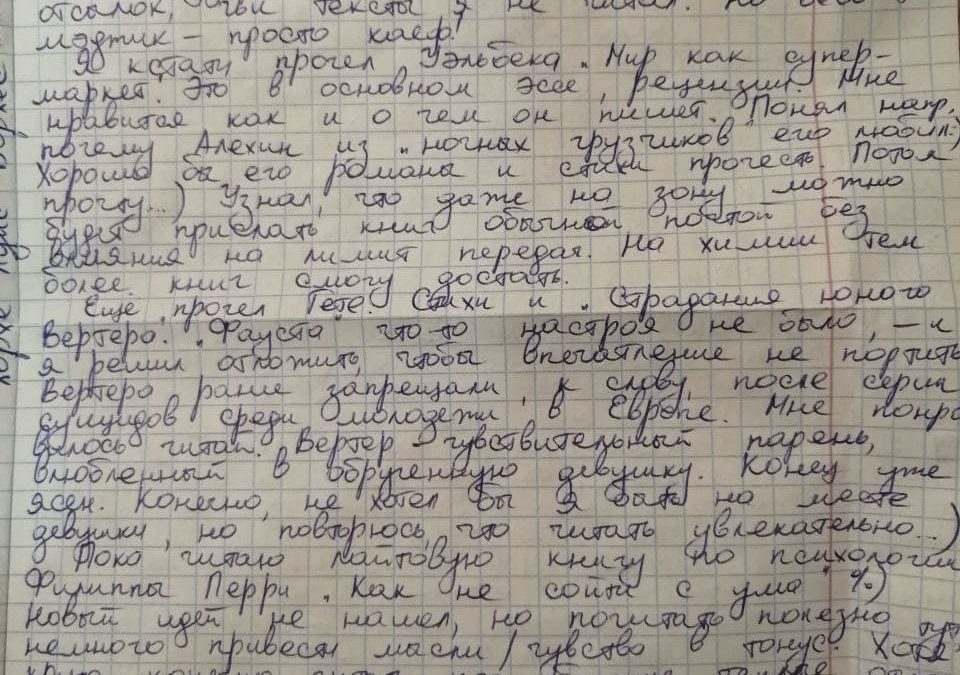 отсылок, чьи тексты я не читал. Но всё
мэджик – просто кайф!
Я кстати прочёл Уэльбека „Мир как супер-
маркет". Это в основном эссе, рецензии. Мне
нравится как и о чем он пишет. Понял напр.
почему Алехин из „ночных грузчиков" его любил:)
Хорошо бы его романы и стихи прочесть. Потом
прочту...) Узнал, что даже на зону можно
будет присылать книг обычной почтой без
влияния на лимит передач. На химии тем
более книг смогу достать.
Ещё прочёл Гёте. Стихи и „Страдания юного
Вертера". „Фауста" что-то настроя не было, – и
я решил отложить, чтобы впечатление не портить.
Вертера ранее запрещали, к слову, после серии
суицидов среди молодежи в Европе. Мне понра
вилось читать. Вертер – чувствительный парень,
влюбленный в обрученную девушку. Конец уже
ясен. Конечно, не хотел бы я быть на месте
девушки, но повторюсь, что читать увлекательно...)
Пока читаю лайтовую книгу по психологии
Филиппы Перри „Как не сойти с ума" %)
Новых идей не нашел, но почитать полезно
немного привести мысли/чувства в тонус. Хотя